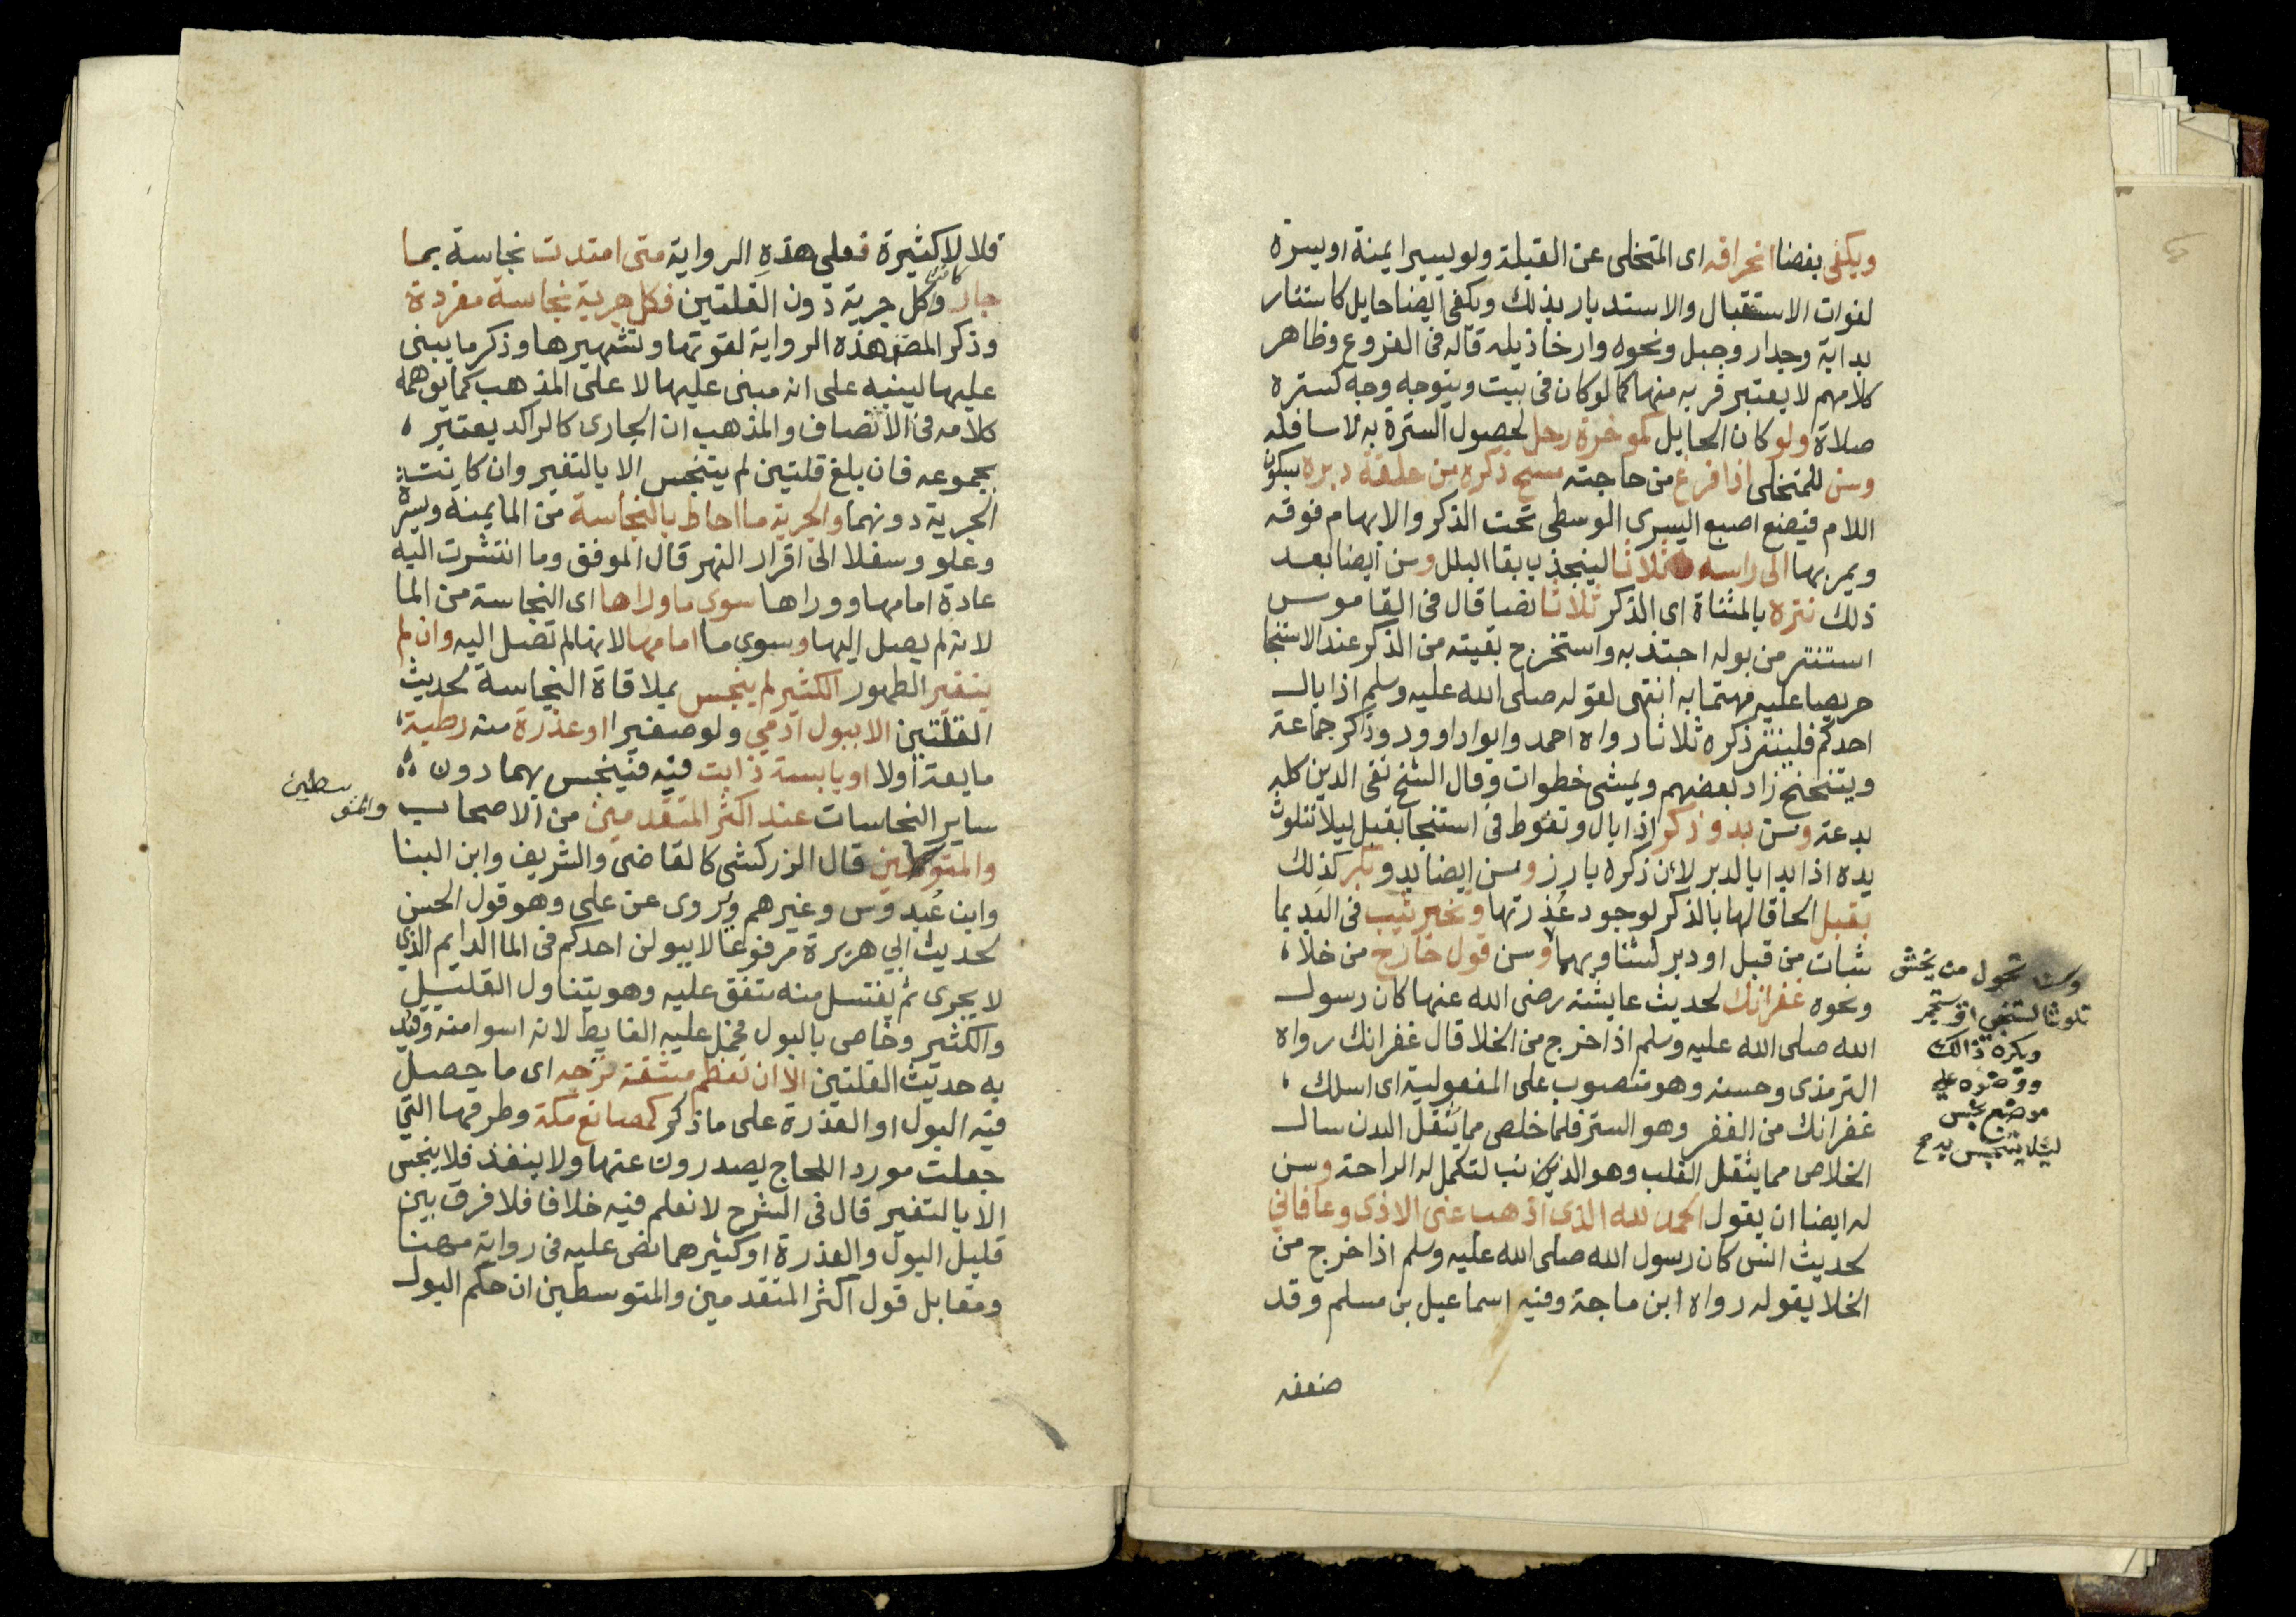 ويكفي بفضا انحرافه اى المتخلى عن القبلة ولو يسيرا يمنة او يسرة
لفوات الاستقبال والاستدبار بذلك ويكفى ايضا حايل كاستتار
بدابة وجدار وجبل ونحوه وارخا ذيله قاله فى الفروع وظاهر
كلامهم لا يعتبر قربه منها كما لو كان فى بيت ويتوجه وجه كسترة
صلاة ولو كان الحايل كموخرة رحل لحصول السترة به لاسافله
وسن للمتخلى اذا فرغ من حاجته مسح ذكره من حلقة دبره بسكون
اللام فيضع اصبع اليسرى الوسطى تحت الذكر والابهام فوقه
ويمر بهما الى راسه ثلاثا لينجذب بقا البلل وسن ايضا بعد
ذلك نتره بالمثناة اى الذكر ثلاثا نصا قال فى القاموس
استنتر من بوله اجتذبه واستخرج بقيته من الذكر عند الاستنجا
حريصا عليه مهتما به انتهى لقوله صلى الله عليه وسلم اذا بال
احدكم فلينتر ذكره ثلاثا رواه احمد وابو داوود وذكر جماعة
ويتنحنح زاد بعضهم ويمشى خطوات وقال الشيخ تقى الدين كله
بدعة وسن بدو ذكر اذا بال وتغوط فى استنجا بقبل ليلا تتلوث
يده اذا بدا بالدبر لان ذكره بارز وسن ايضا بدو بكر كذلك
بقبل الحاقا لها بالذكر لوجود عذرتها وتخير ثيب فى البد بما
شات من قبل او دبر لتساويهما وسن قول خارج من خلاه
ونحوه غفرانك لحديث عايشة رضى الله عنها كان رسول
الله صلى الله عليه وسلم اذا خرج من الخلا قال غفرانك رواه
الترمذى وحسنه وهو منصوب على المفعولية اى اسلك
غفرانك من الغفر وهو الستر فلما خلص مما يثقل البدن سال
الخلاص مما يثقل القلب وهو الذنب لتكمل له الراحة وسن
له ايضا ان يقول الحمد لله الذى اذهب عنى الاذى وعافانى
لحديث انس كان رسول الله صلى الله عليه وسلم اذا خرج من
الخلا يقوله رواه ابن ماجة وفيه اسماعيل بن مسلم وقد
ضعفه
وسن تحول من يخشى
تلوثا ليستنجي او يستجمر
ويكره ذالك
ووضوه على
موضع نجس
ليلا يتنجس به صح
قلالا كثيرة فعلى هذه الرواية متى امتدت نجاسة بما
جار وكانت كل جرية دون القلتين فكل جرية نجاسة مفردة
وذكر المص هذه الرواية لقوتها وتشهيرها وذكر ما يبنى
عليها لينبه على انه مبنى عليها لا على المذهب كما يوهمه
كلامه فى الانصاف والمذهب ان الجارى كالراكد يعتبر
بمجموعه فان بلغ قلتين لم يتنجس الا بالتغير وان كانت
الجرية دونهما والجرية ما احاط بالنجاسة من الما يمنة ويسرة
وعلو وسفلا الى اقرار النهر قال الموفق وما انتشرت اليه
عادة امامها ووراها سوى ما وراها اى النجاسة من الما
لانه لم يصل اليها وسوى ما امامها لانها لم تصل اليه وان لم
يتغير الطهور الكثير لم ينجس بملاقاة النجاسة لحديث
القلتين الا ببول ادمي ولو صغيرا او عذرة منه رطبة
مايعة اولا او يابسة ذابت فيه فينجس بهما دون
ساير النجاسات عند اكثر المتقدمين من الاصحاب
والمتوسطين
والمتوسطين قال الزركشى كالقاضى والشريف وابن البنا
وابن عبدوس وغيرهم ويروى عن على وهو قول الحسن
لحديث ابي هريرة مرفوعا لا يبولن احدكم فى الما الدايم الذى
لا يجرى ثم يغتسل منه متفق عليه وهو يتناول القليل
والكثير وخاص بالبول فحمل عليه الغايط لانه اسوا منه وقيد
به حديث القلتين الا ان تعظم مشقة نزحه اى ما حصل
فيه البول او العذرة على ما ذكر كمصانع مكة وطرقها التي
جعلت موردا للحاج يصدرون عنها ولا ينفذ فلا ينجس
الا بالتغير قال فى الشرح لا نعلم فيه خلافا فلا فرق بين
قليل البول والعذرة او كثيرهما نص عليه فى رواية مهنا
ومقابل قول اكثر المتقدمين والمتوسطين ان حكم البول